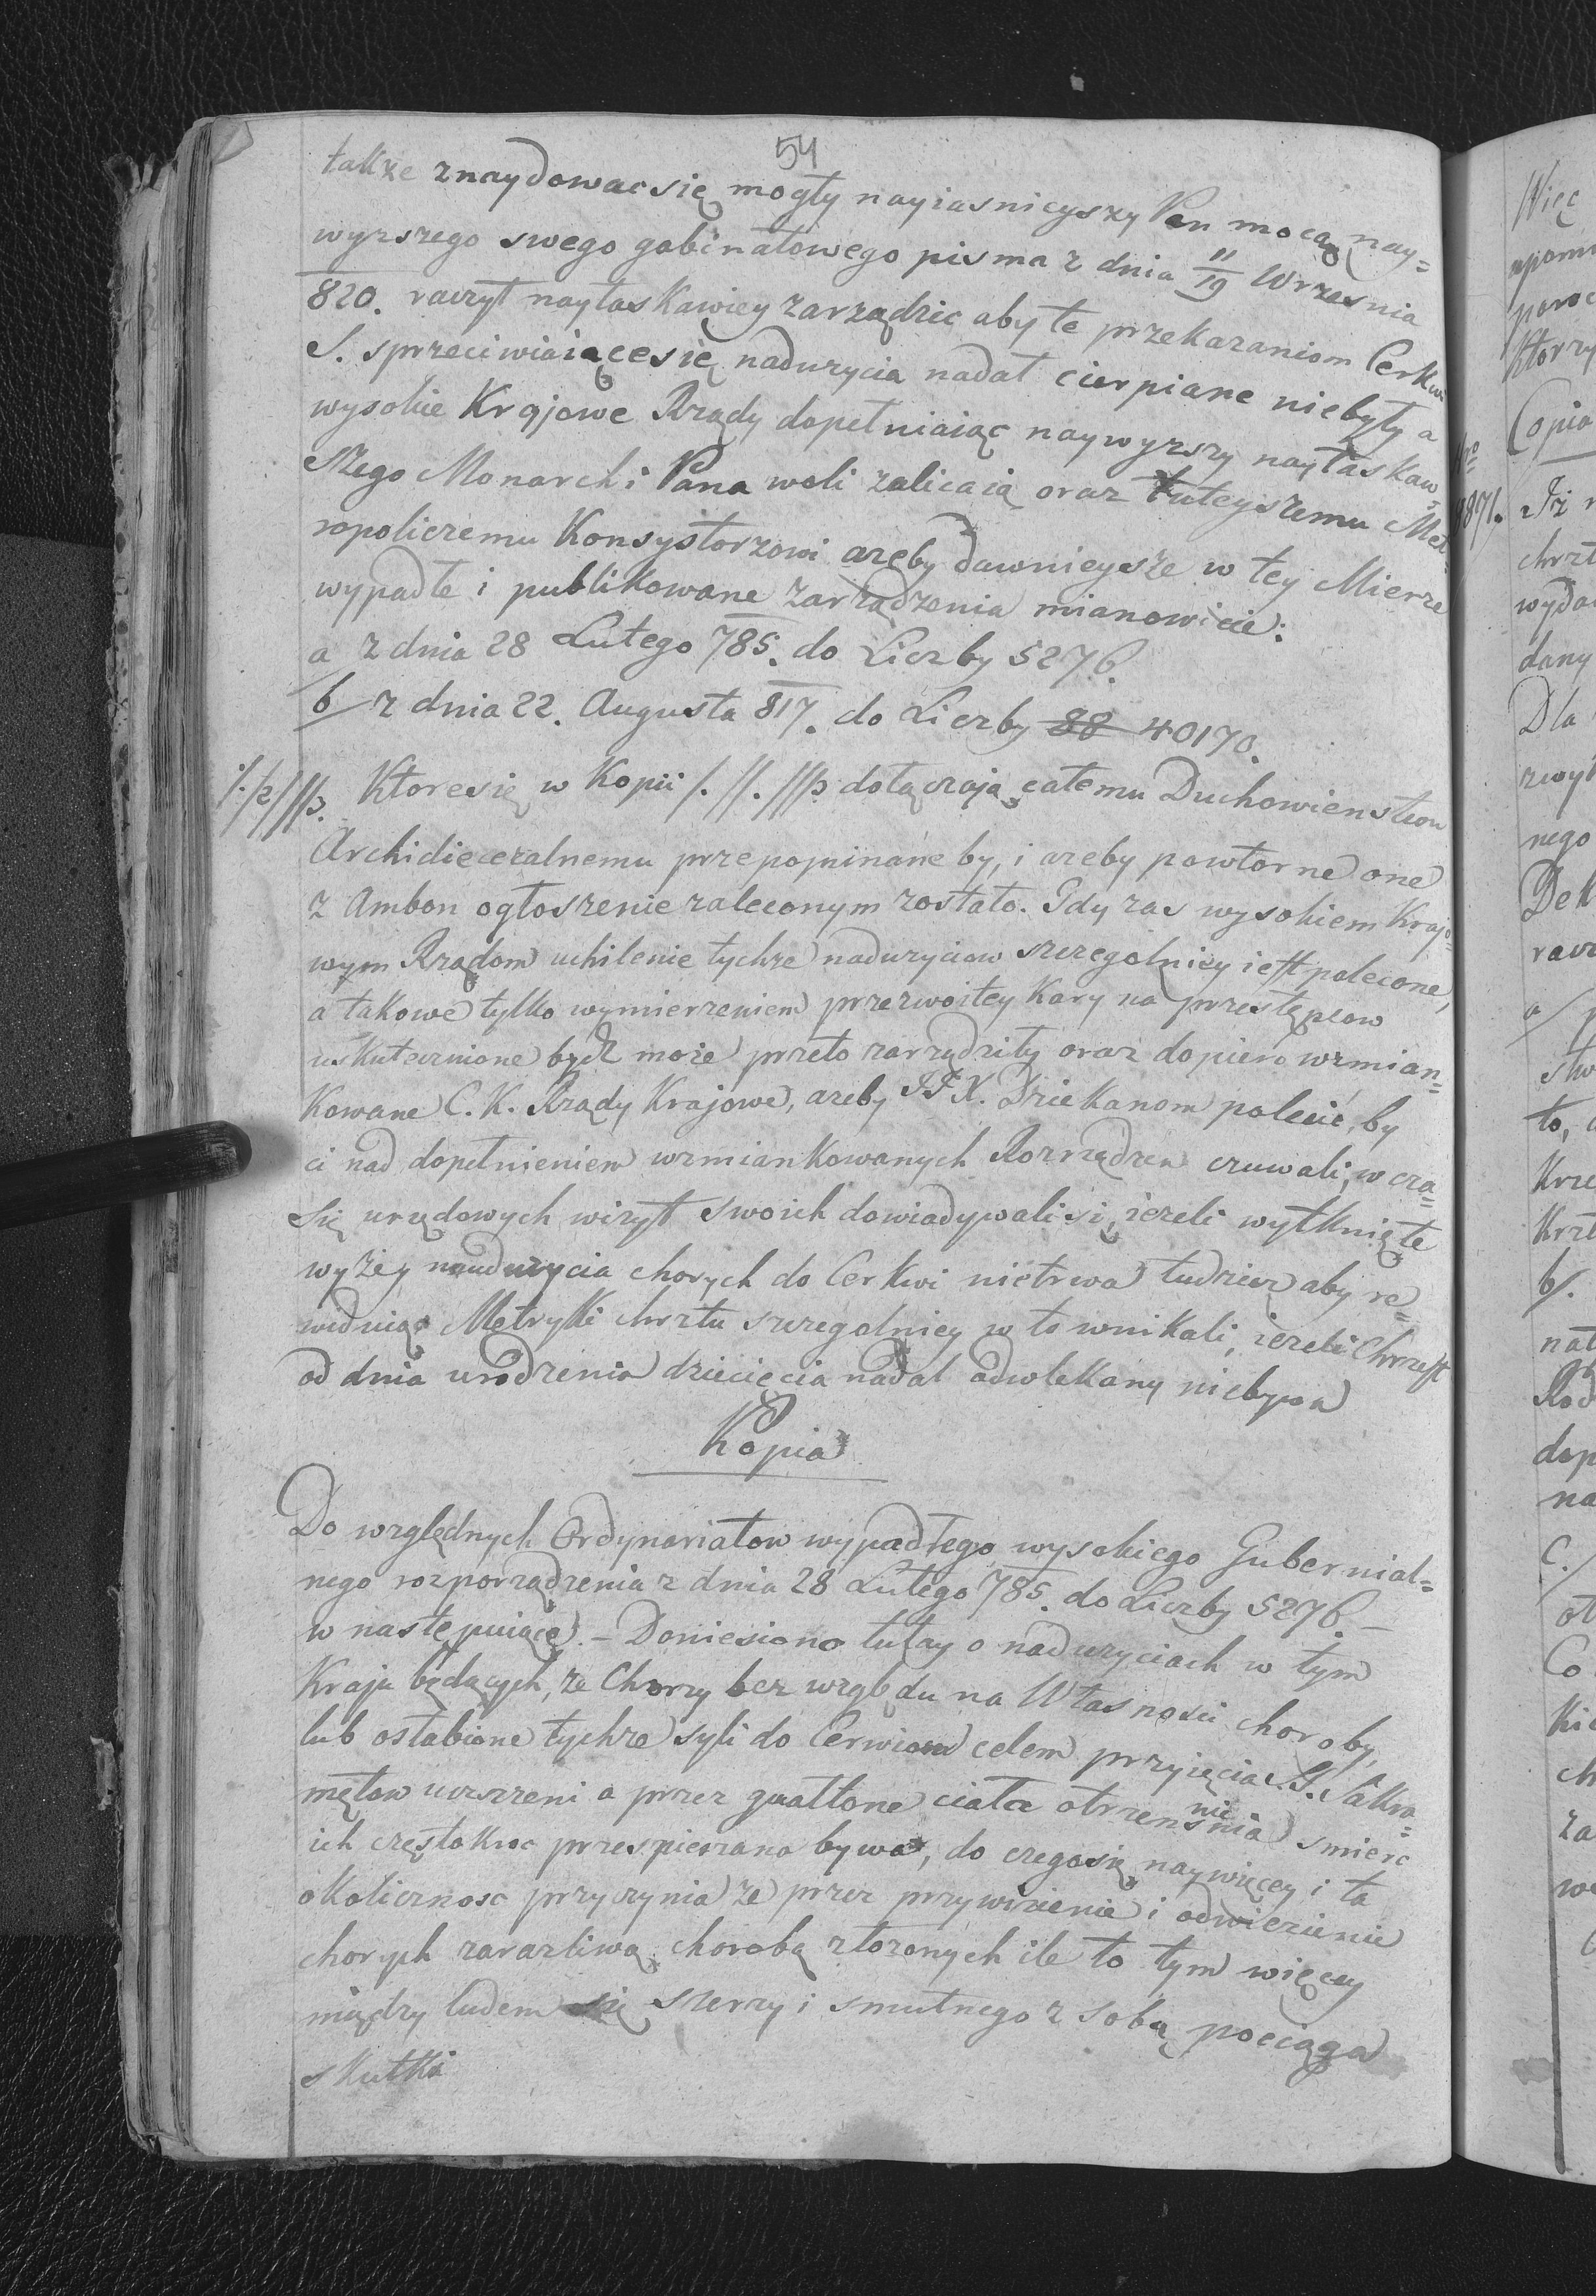 54
także znaydowac się mogły nayiasnieyszy Pan mocą nay=
wyzszego swego gabinatowego pisma z dnia 11/19 Wrzesnia
820. raczył nayłaskawiey zarządzic aby te przekazaniom Cerkwi
S. sprzeciwiaiące się naduzycia nadal cierpiane niebyły a
wysokie Krajowe Rządy dopełniaiąc naywyzszy nayłaskaw=
szego Monarchi Pana woli zalicaią oraz tuteyszemu Met=
ropoliczemu Konsystorzowi azeby dawnieysze w tey Mierze
wypadłe i publikowane zarządzenia mianowicie:
a/ z dnia 28 Lutego 785. do Liczby 5276.
b/ z dnia 22. Augusta 817. do Liczby 88 40170.
/./2///3. Ktore się w Kopii /. //. ///3 dołączają całemu Duchowienstwu
Archidiecezalnemu przepominane by, i azeby powtorne one
z Ambon ogłoszenie zaleconym zostało. Gdy zas wysokiem Krajo=
wym Rządom uchilenie tychze naduzyciow szczegolniey iest polecone,
a takowe tylko wymierzeniem przezwoitey Kary na przestępcow
uskutecznione bydz może przeto zarządziły oraz dopiero wzmian=
kowane C. K. Rządy Krajowe, azeby JJ X. Dziekanom polecić, by
ci nad dopełnieniem wzmiankowanych Rozrządzen czuwali, w cza=
się urzędowych wizyt swoich dowiadywali się, iezeli wytknięte
wyżey naduzycia chorych do Cerkwi nietrwa tudziez aby re=
widuiąc Metryki chrztu szczegolniey w to wnikali, iezeli Chrzest
od dnia urodzenia dziecięcia nadal odwlekany niebywa
Kopia
Do względnych Ordynariatow wypadłego wysokiego Gubernial=
nego rozporządzenia z dnia 28 Lutego 785. do Liczby 5276. –
w następuiące. – Doniesiono tutay o naduzyciach w tym
Kraju będących, ze Chorzy bez względu na Własnosci choroby,
lub osłabione tychze syli do Cerwiow celem przyięcia SS. Sakra=
mętow uczszeni a przez gwałtone ciała otrzensnienia smierc
ich częstokroc przespieszana bywa, do czego się naywięcey i ta
okolicznosc przyczynia ze przez przywizienie i odwiezienie
chorych zarazliwą chorobą złozonych ile to tym więcey
między ludem się szerzy i smutnego z sobą pociąga
skutki
Więc
Ktorzy
Copia
Nro
8871.
Iż
chrzt
wyda
dany
Dla
zwył
nego
Dek
racz
a/
to,
Krze
Krzt
b/.
nat
Rod
dop
na
C./
ot
Co
Kie
ch
za